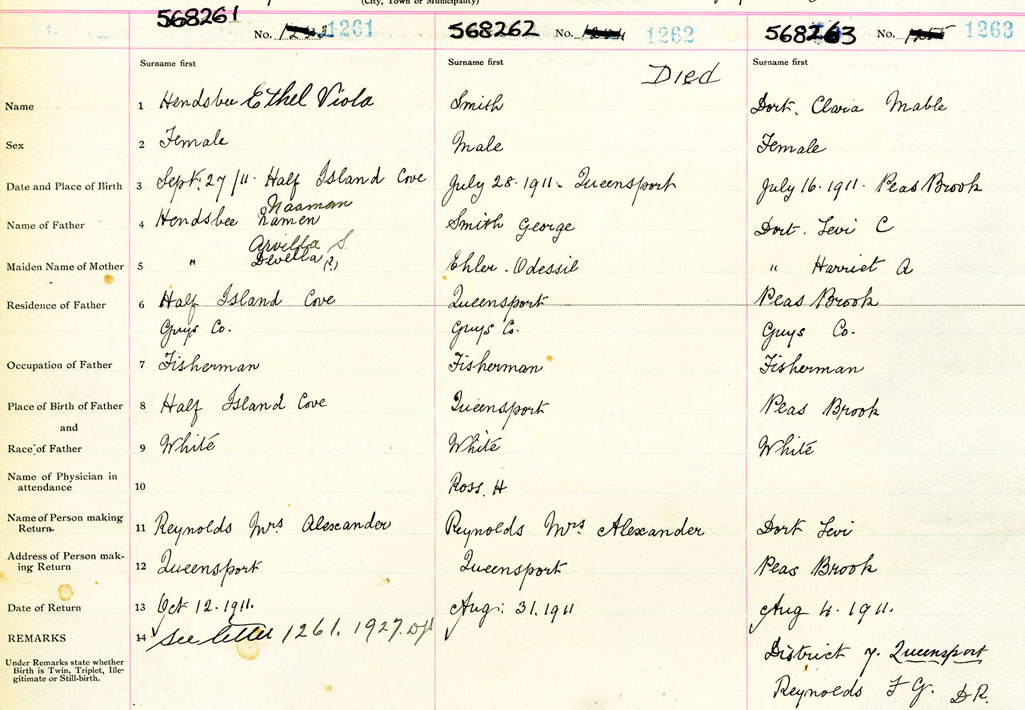 (City, Town or Municipality)
568261 No. 1261 568262 No. 1262 568263 No. 1263
Surname first Surname first Died Surname first
Name 1 Hendsbee Ethel Viola Smith Dort. Clara Mable
Sex 2 Female Male Female
Date and Place of Birth 3 Sept. 27/11. Half Island Cove July 28. 1911. Queensport July 16. 1911. Peas Brook
Naaman
Name of Father 4 Hendsbee Namen Smith George Dort. Levi C
Arvilla S.
Maiden Name of Mother 5 " Devella Ehler. Odessil " Harriet A
Residence of Father 6 Half Island Cove Queensport Peas Brook
Guys Co. Guys Co. Guys Co.
Occupation of Father 7 Fisherman Fisherman Fisherman
Place of Birth of Father 8 Half Island Cove Queensport Peas Brook
and
Race of Father 9 White White White
Name of Physician in
attendance 10 Ross. H
Name of Person making
Return. 11 Reynolds Mrs Alexander Reynolds Mrs. Alexander Dort Levi
Address of Person mak-
ing Return 12 Queensport Queensport Peas Brook
Date of Return 13 Oct 12. 1911. Aug: 31. 1911 Aug 4. 1911.
REMARKS 14 See letter 1261. 1927.
Under Remarks state whether
Birth is Twin, Triplet, Ille-
gitimate or Still-birth.
District 7. Queensport
Reynolds F G. D.R.